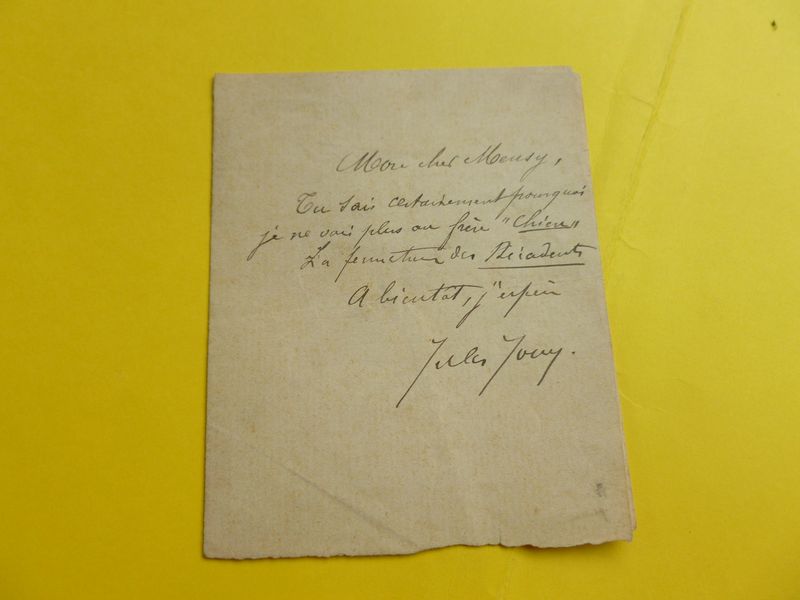 Mon cher Meusy,
Tu sais certainement pourquoi
je ne vais plus au frère "Chien"
La fermeture des Décadents
A bientot, j'espère
Jules Jouy.